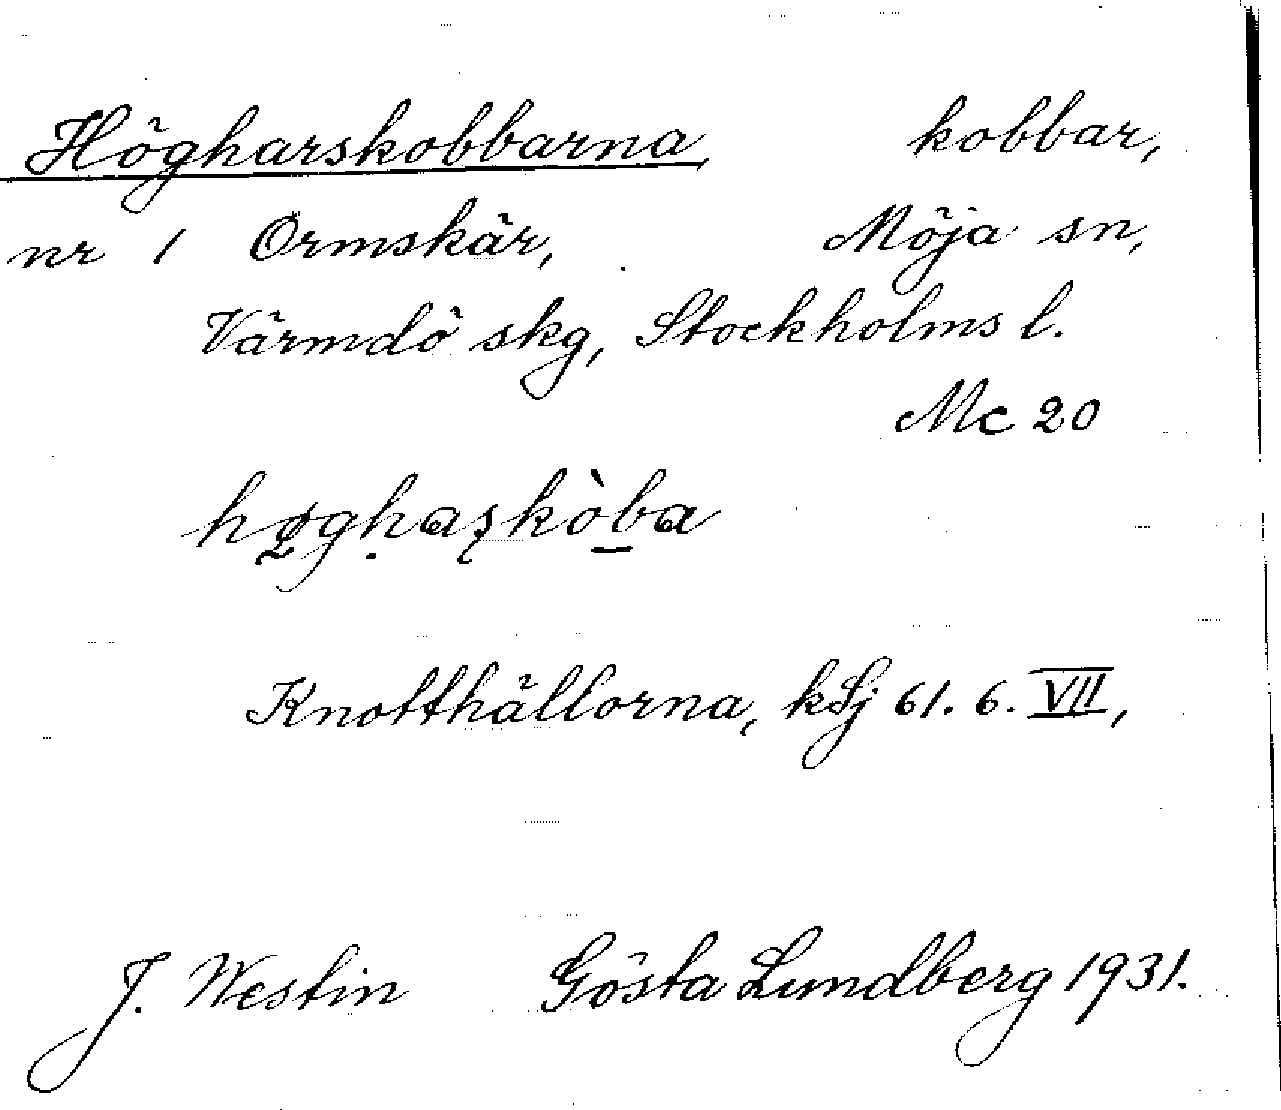 Högharskobbarna, kobbar,
nr 1 Ormskär, Möja sn,
Värmdö skg, Stockholms l.
Mc 20
høghaʂkòba
Knotthällorna, kSj 61. 6. VII,
J. Westin Gösta Lundberg 1931.